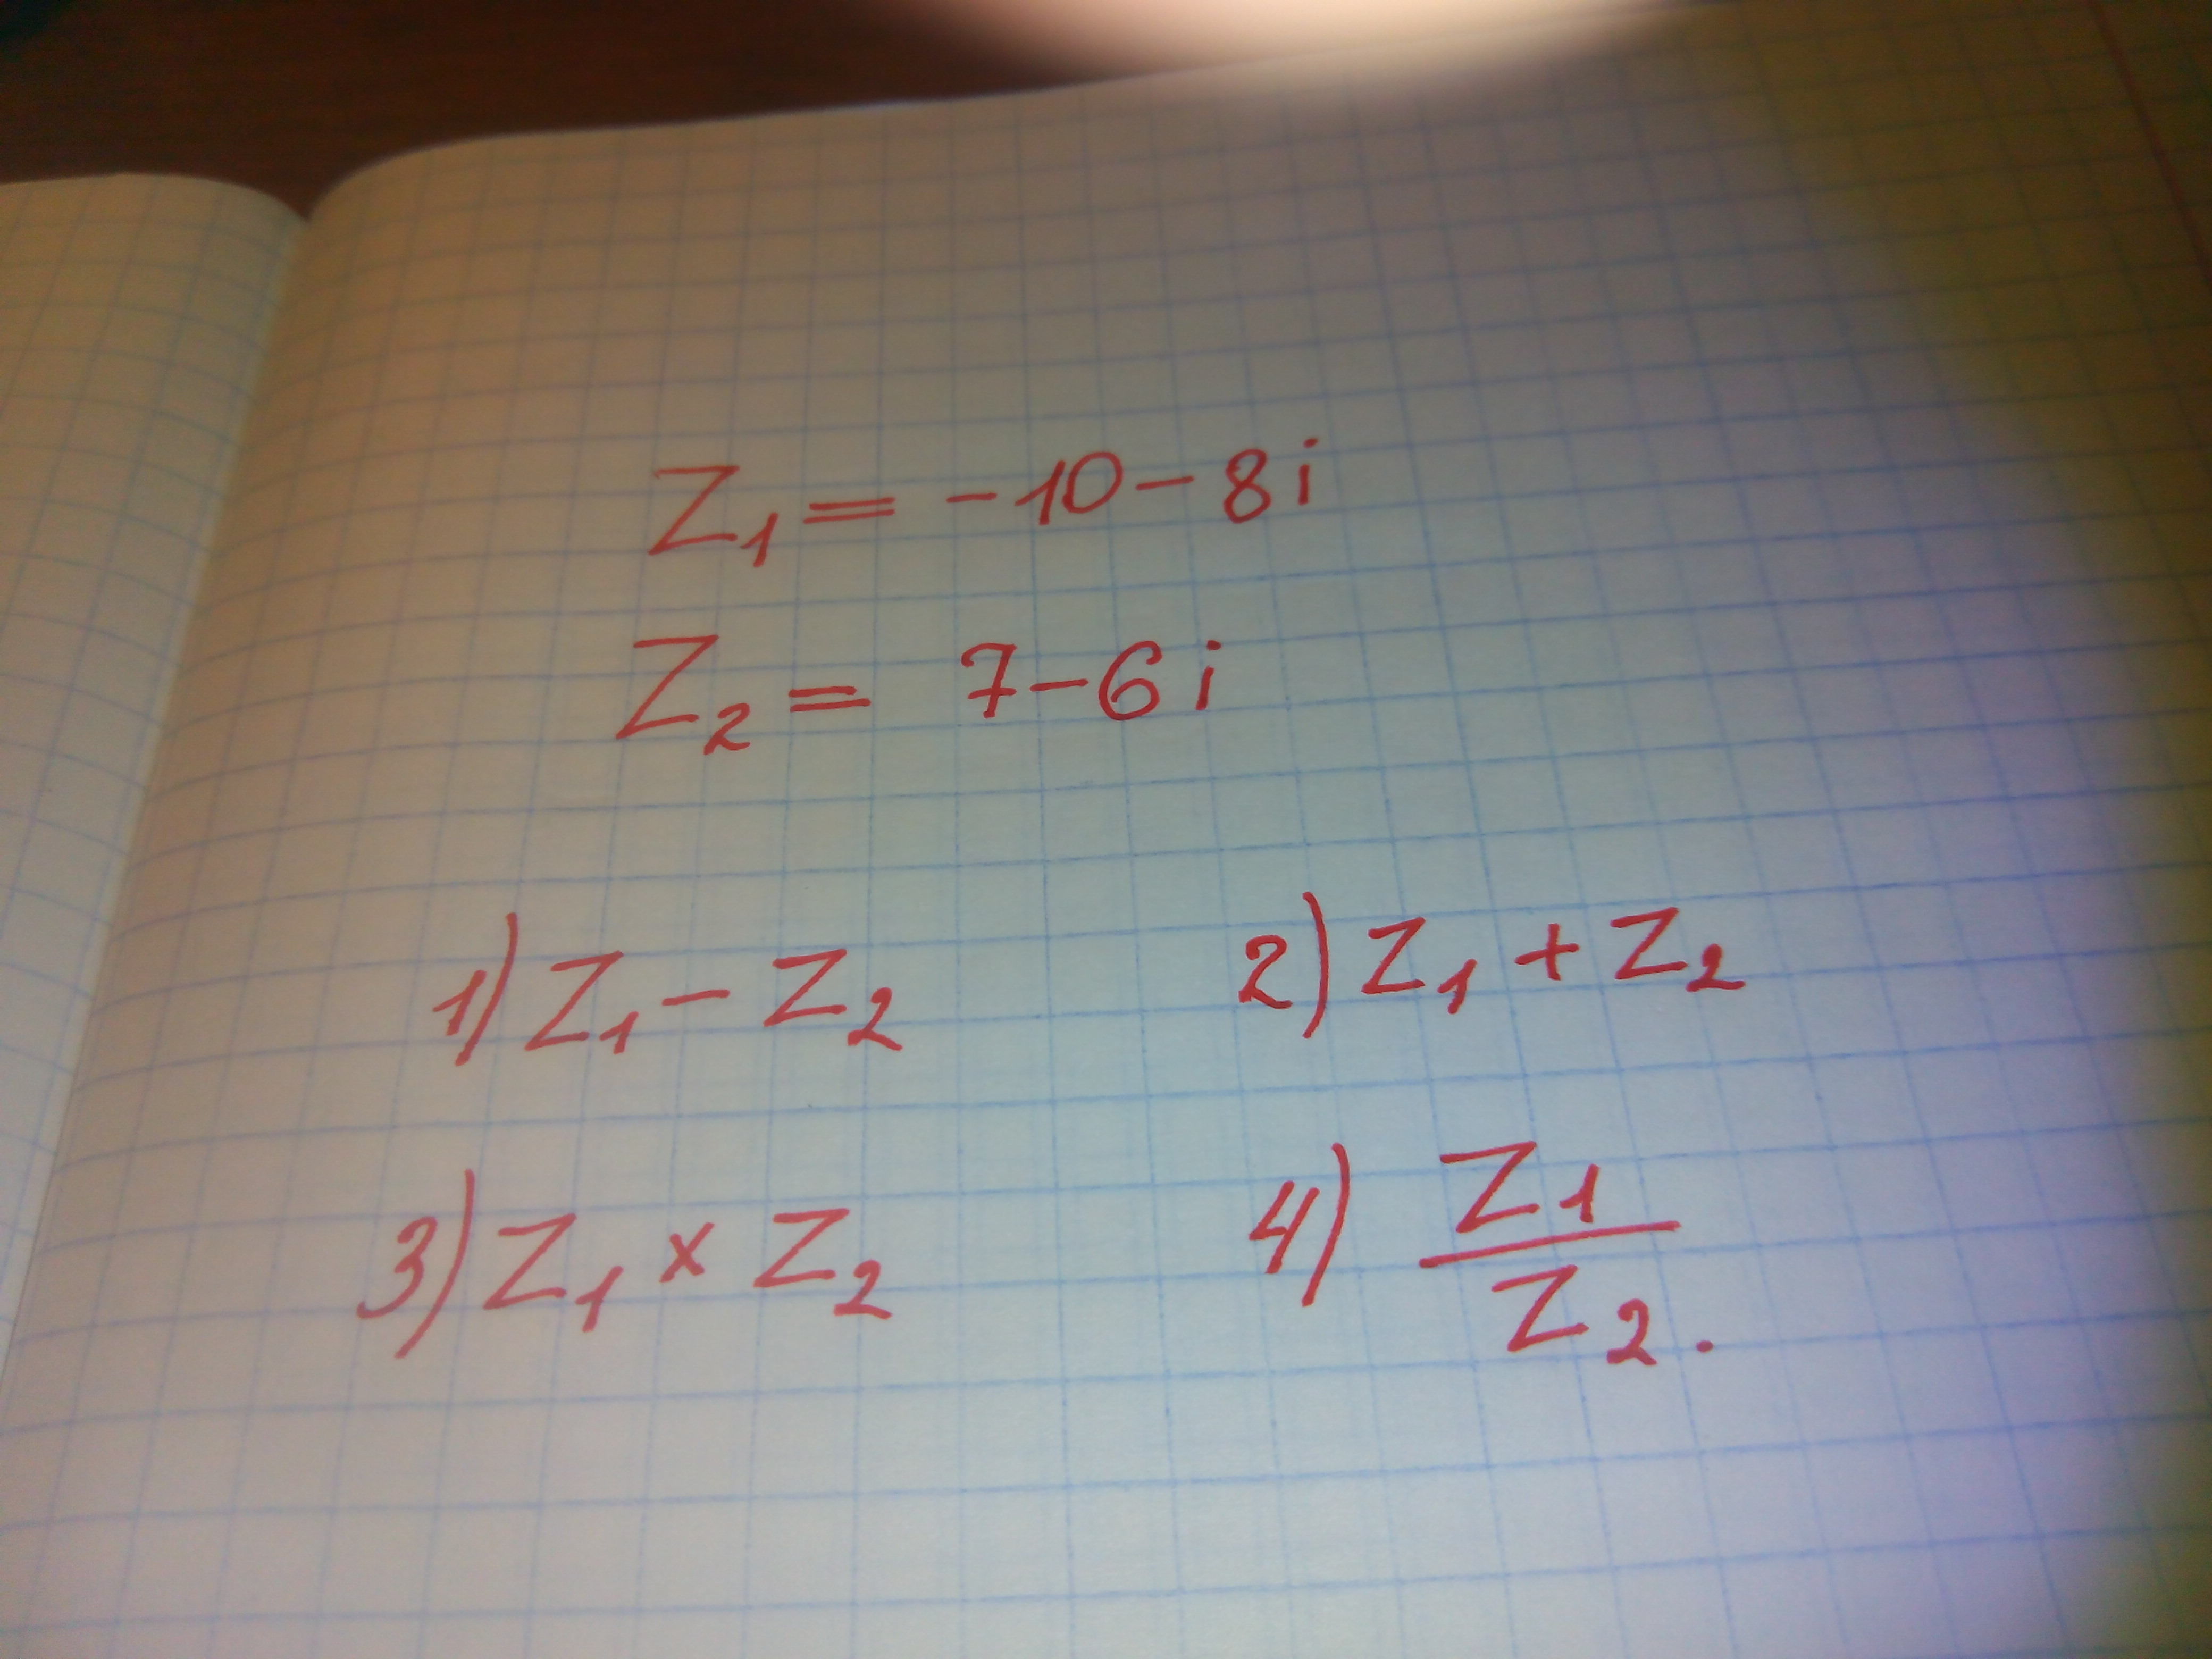 Z₁ = -10 - 8i
Z₂ = 7 - 6i
1) Z₁ - Z₂ 2) Z₁ + Z₂
3) Z₁ × Z₂ 4) Z₁/Z₂.